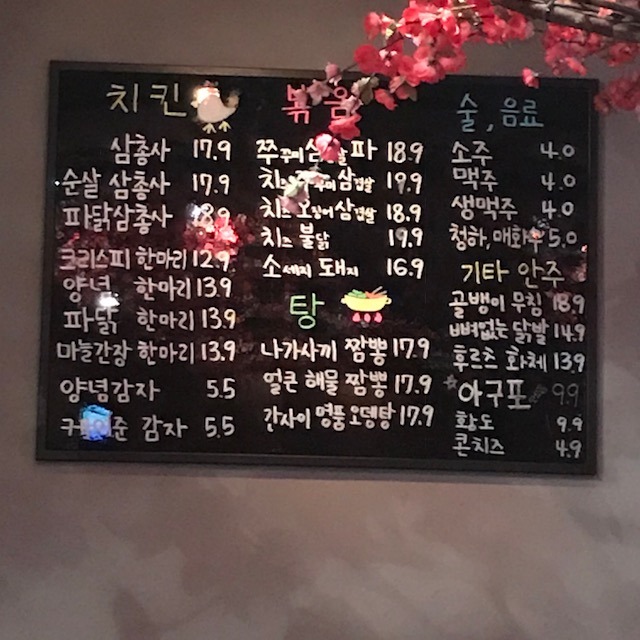 치킨
삼총사 17.9
순살 삼총사 17.9
파닭삼총사 18.9
크리스피 한마리 12.9
양념 한마리 13.9
파닭 한마리 13.9
마늘간장 한마리 13.9
양념감자 5.5
감자 5.5
볶음
파 18.9
치즈 삼겹살 19.9
치즈 오징어 삼겹살 18.9
치즈 불닭 19.9
소세지 돼지 16.9
탕
나가사끼 짬뽕 17.9
얼큰 해물 짬뽕 17.9
간사이 명품 오뎅탕 17.9
술, 음료
소주 4.0
맥주 4.0
생맥주 4.0
청하, 매화수 5.0
기타 안주
골뱅이 무침 18.9
뼈없는 닭발 14.9
후르츠 화채 13.9
아구포 9.9
황도 9.9
콘치즈 4.9